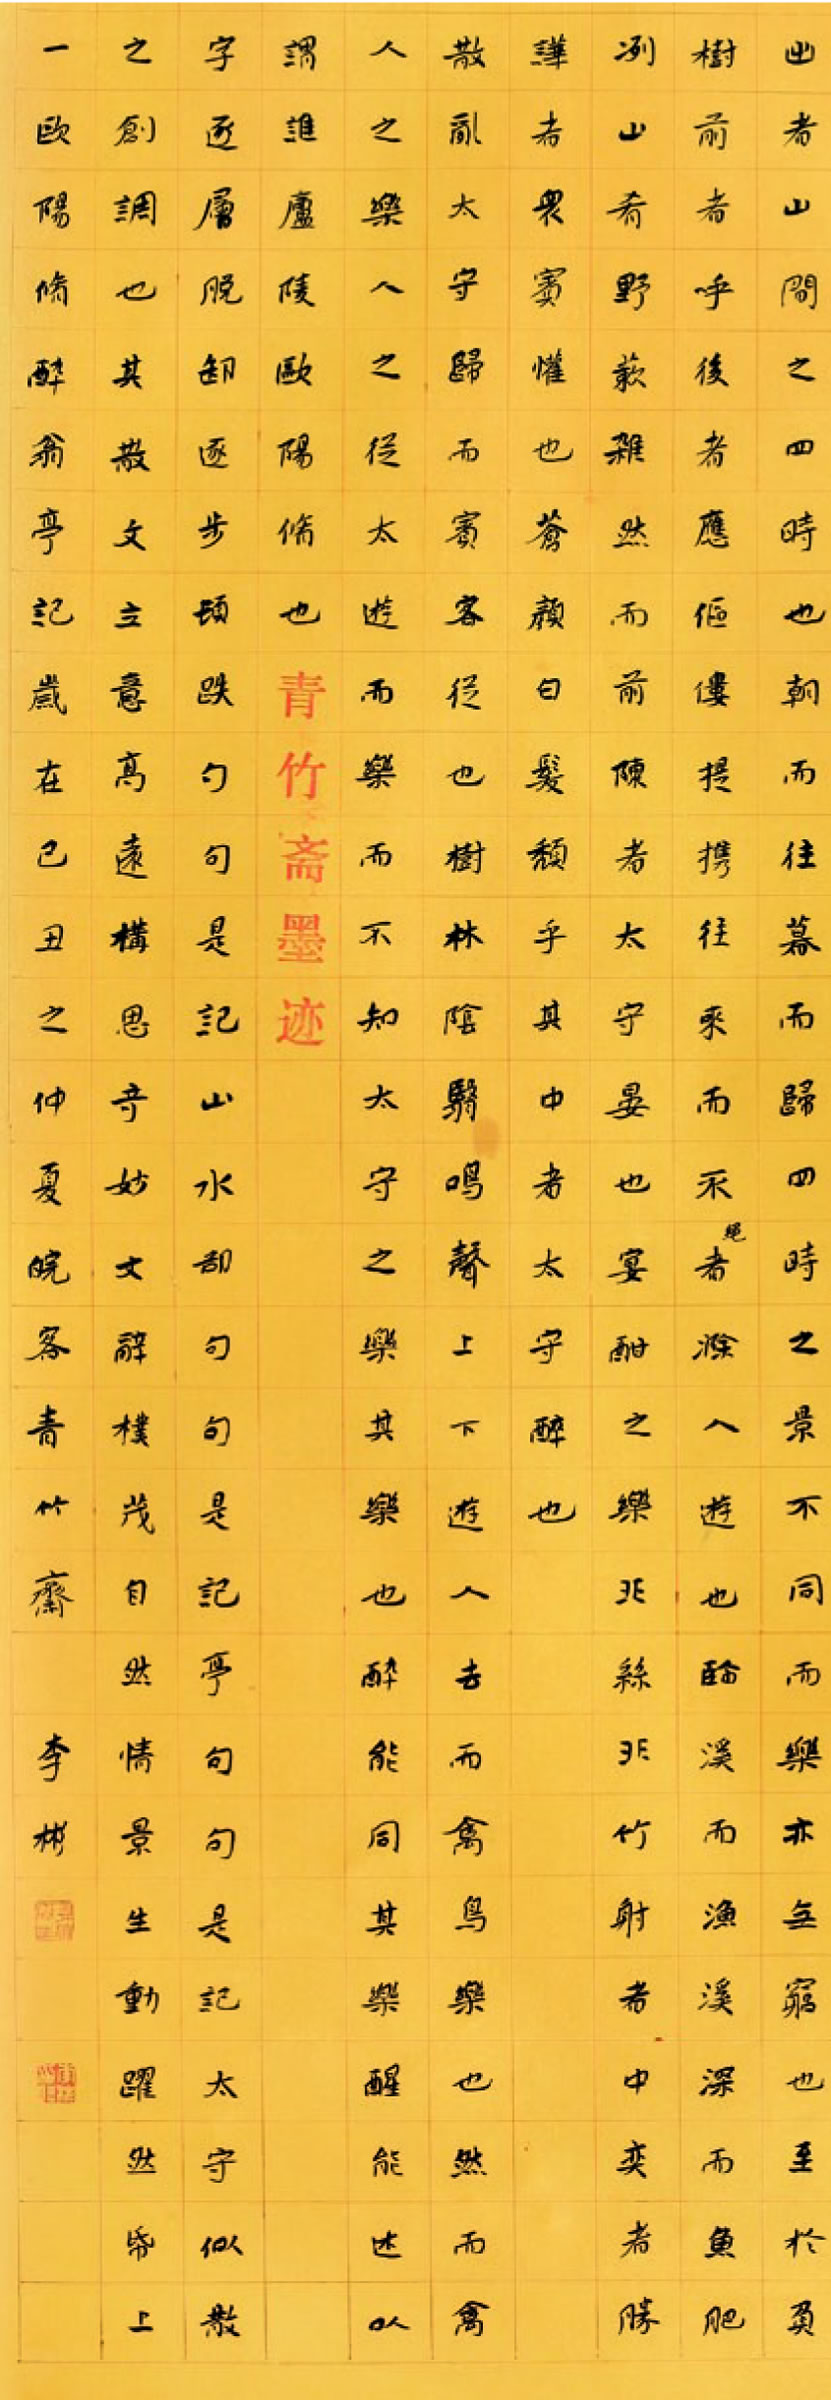 出者山間之四時也朝而往暮而歸四時之景不同而樂亦無窮也至於負
樹前者呼後者應傴僂提携往來而不絕者滁人遊也臨溪而漁溪深而魚肥
冽山肴野蔌雜然而前陳者太守晏也宴酣之樂非絲非竹射者中奕者勝
譁者衆賓懽也蒼顏白髮頹乎其中者太守醉也
散亂太守歸而賓客從也樹林陰翳鳴聲上下遊人去而禽鳥樂也然而禽
人之樂人之從太遊而樂而不知太守之樂其樂也醉能同其樂醒能述以
謂誰廬陵歐陽脩也青竹斋墨迹
字逐層脫卸逐步頓跌句句是記山水却句句是記亭句句是記太守似散
之創調也其散文立意高遠構思奇妙文辭樸茂自然情景生動躍然帋上
一歐陽脩醉翁亭記歲在己丑之仲夏皖客青竹齋 李彬